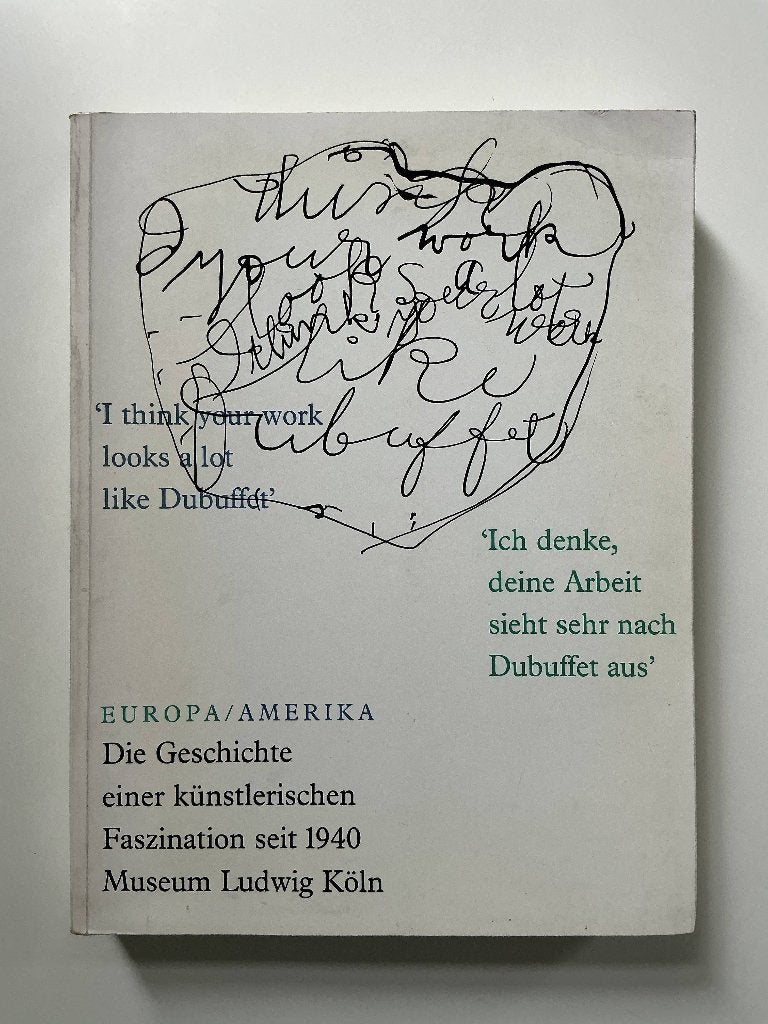 think
your work
look
I think yo
like
Dubuffet
‘I think your work
looks a lot
like Dubuffet’
‘Ich denke,
deine Arbeit
sieht sehr nach
Dubuffet aus’
EUROPA/AMERIKA
Die Geschichte
einer künstlerischen
Faszination seit 1940
Museum Ludwig Köln